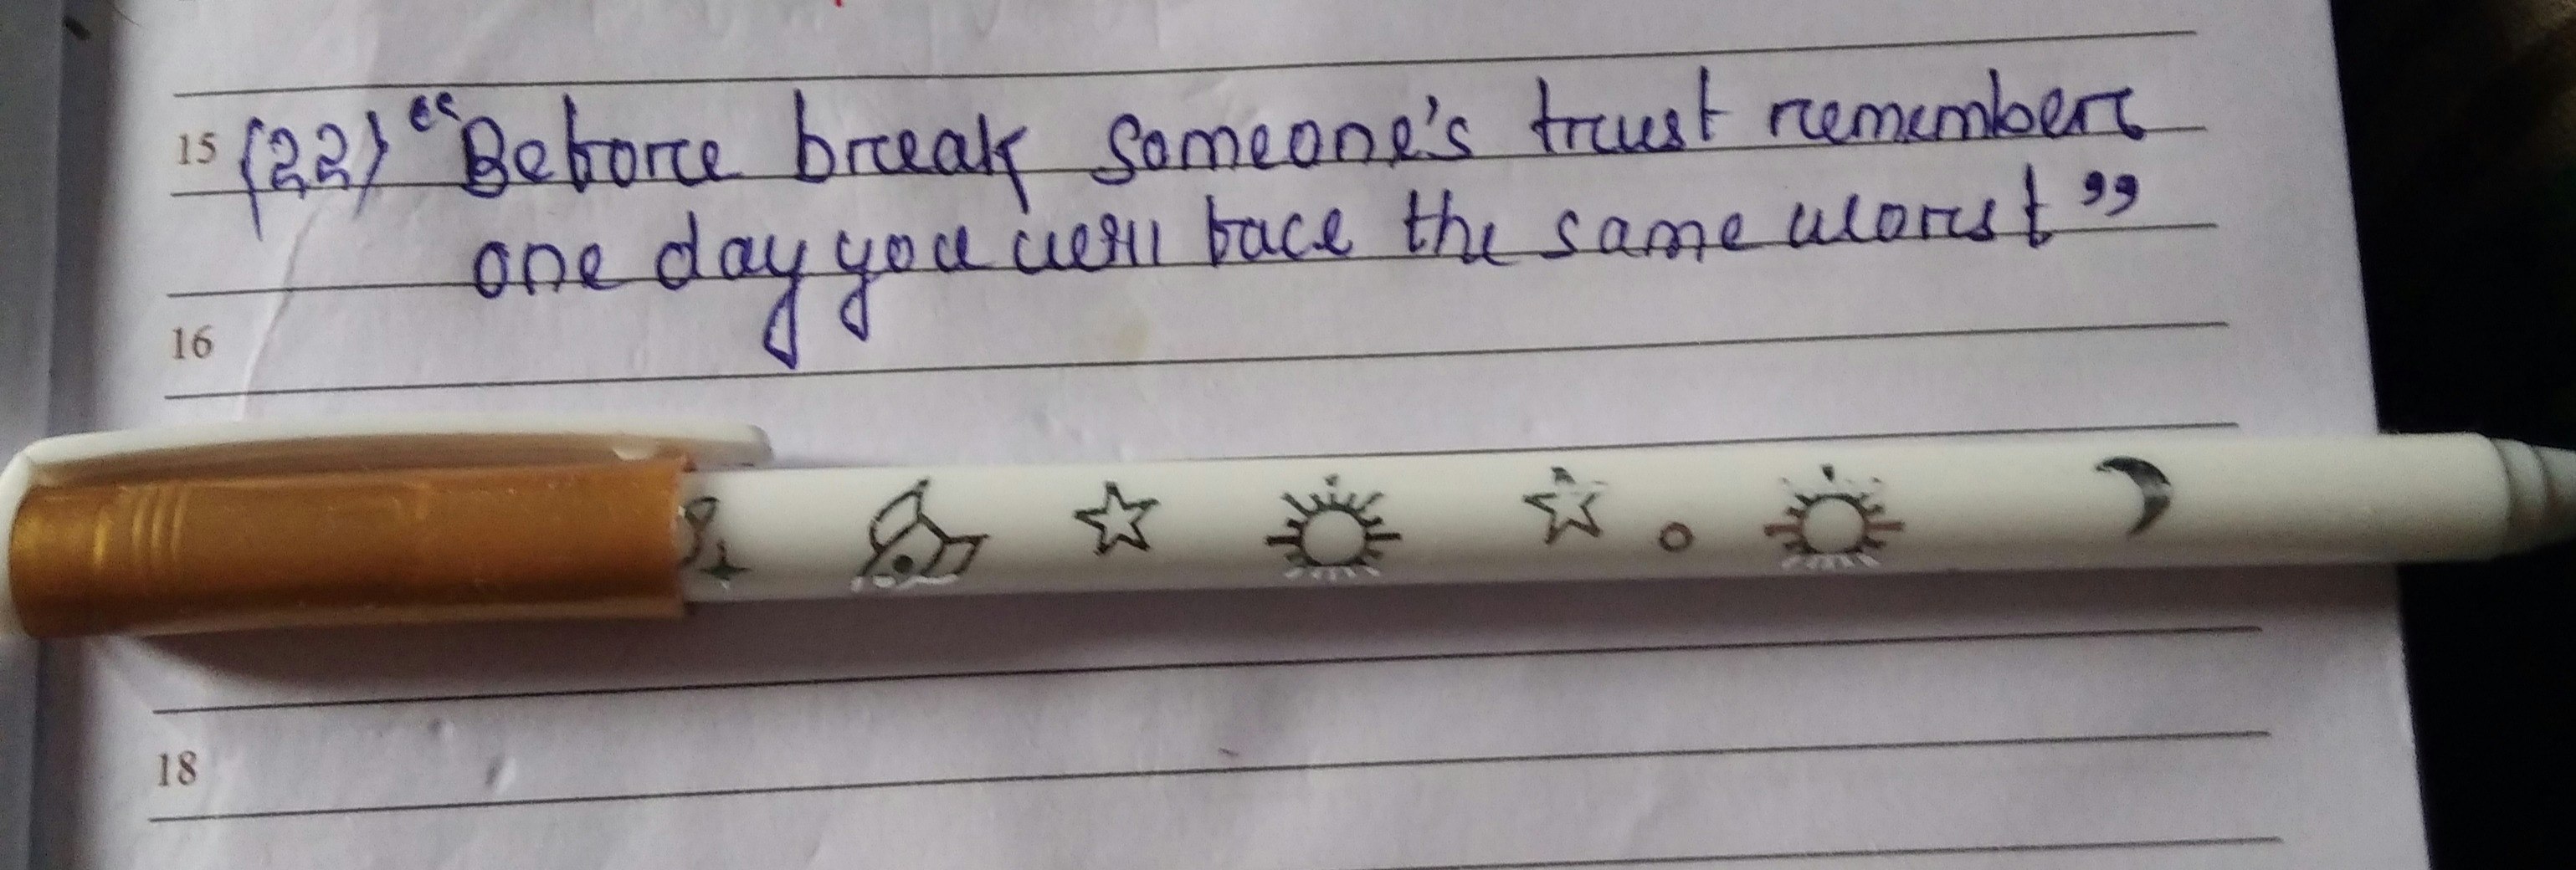 15 (22) “Before break someone's trust remember
one day you will face the same worst”
16
18